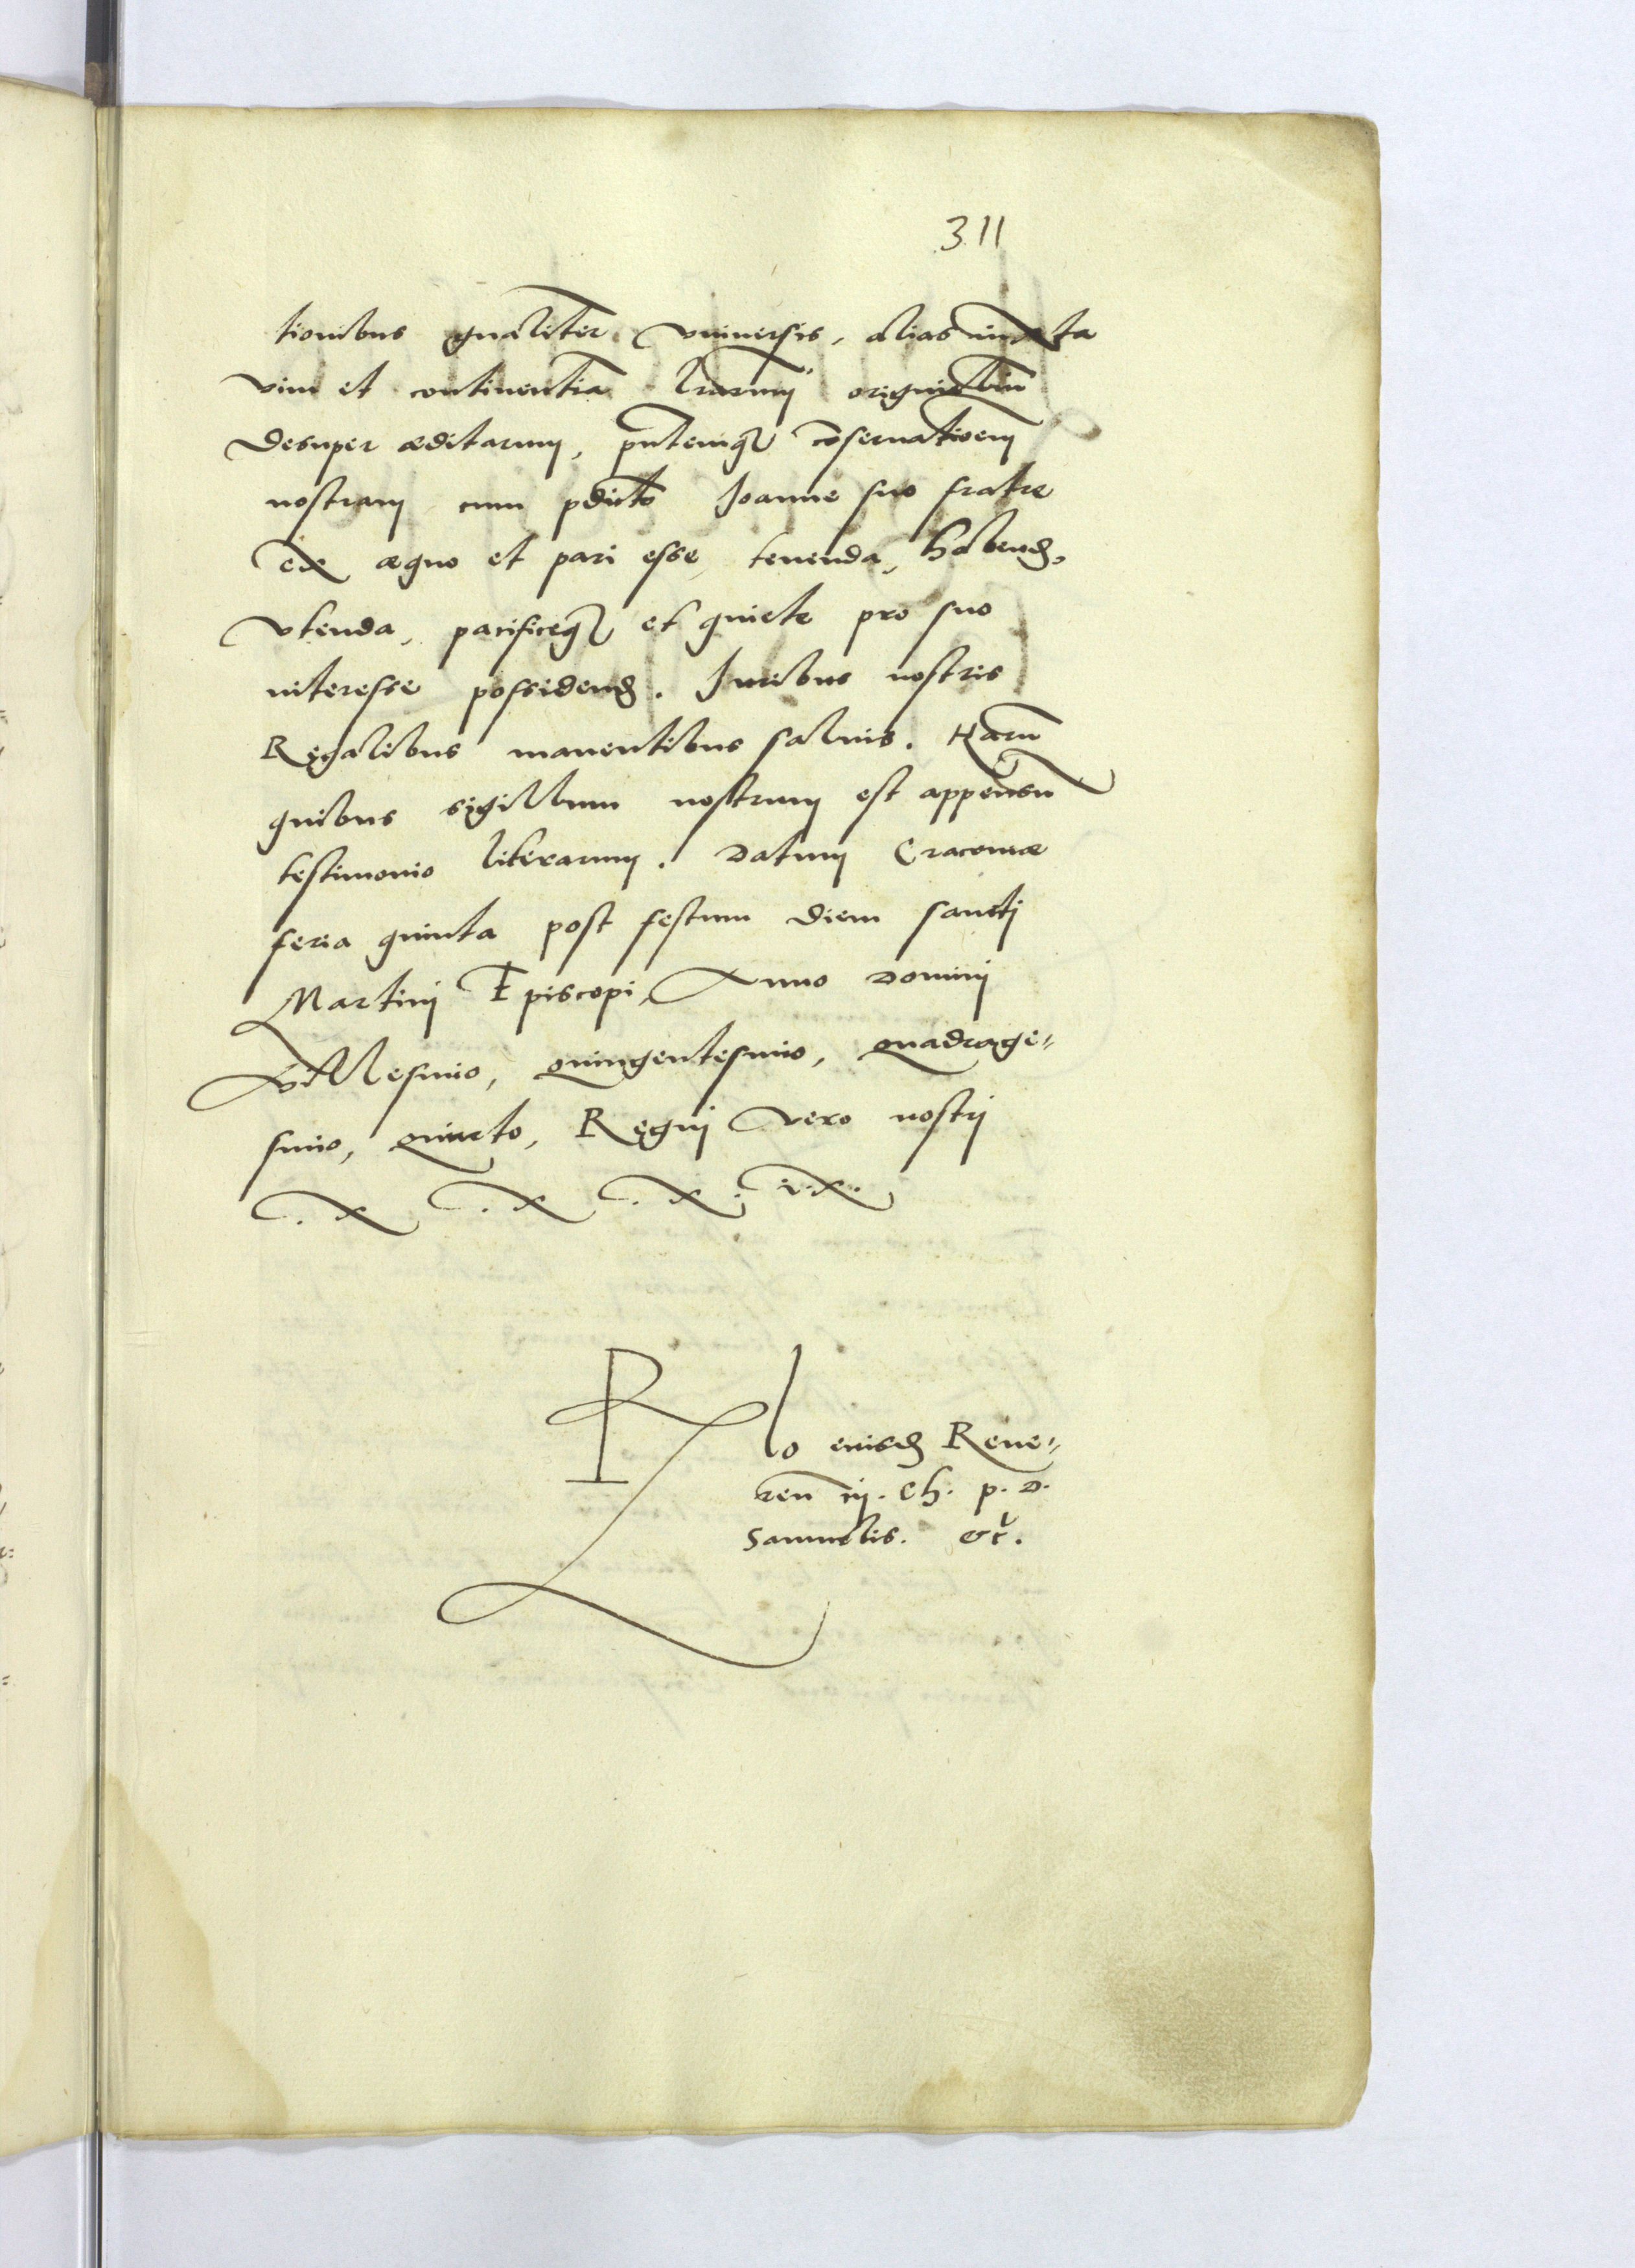 311
tionibus gnaliter vniversis, alias iuxta
vim et continentia lrarum originaliu
desuper æditarum, pntemq3 coseruationem
nostram cum pdicto Joanne suo fratre
ex æquo et pari esse, tenenda, habend,
vtenda, pacificeq3 et quiete pro suo
interesse possidend. Juribus nostris
Regalibus manentibus saluis. Haru
quibus sigillum nostrum est appensu
testimonio literarum. Datum Cracouiæ
feria quinta post festum diem sancti
Martini Episcopi, Anno Domini
Millesimo, quingentesimo, quadrage=
simo, quinto, Regni vero nostri
.x .x .x. i.x.
Rlo eiusd Reue=
ren in. Ch. p. D.
Samuelis. etc.